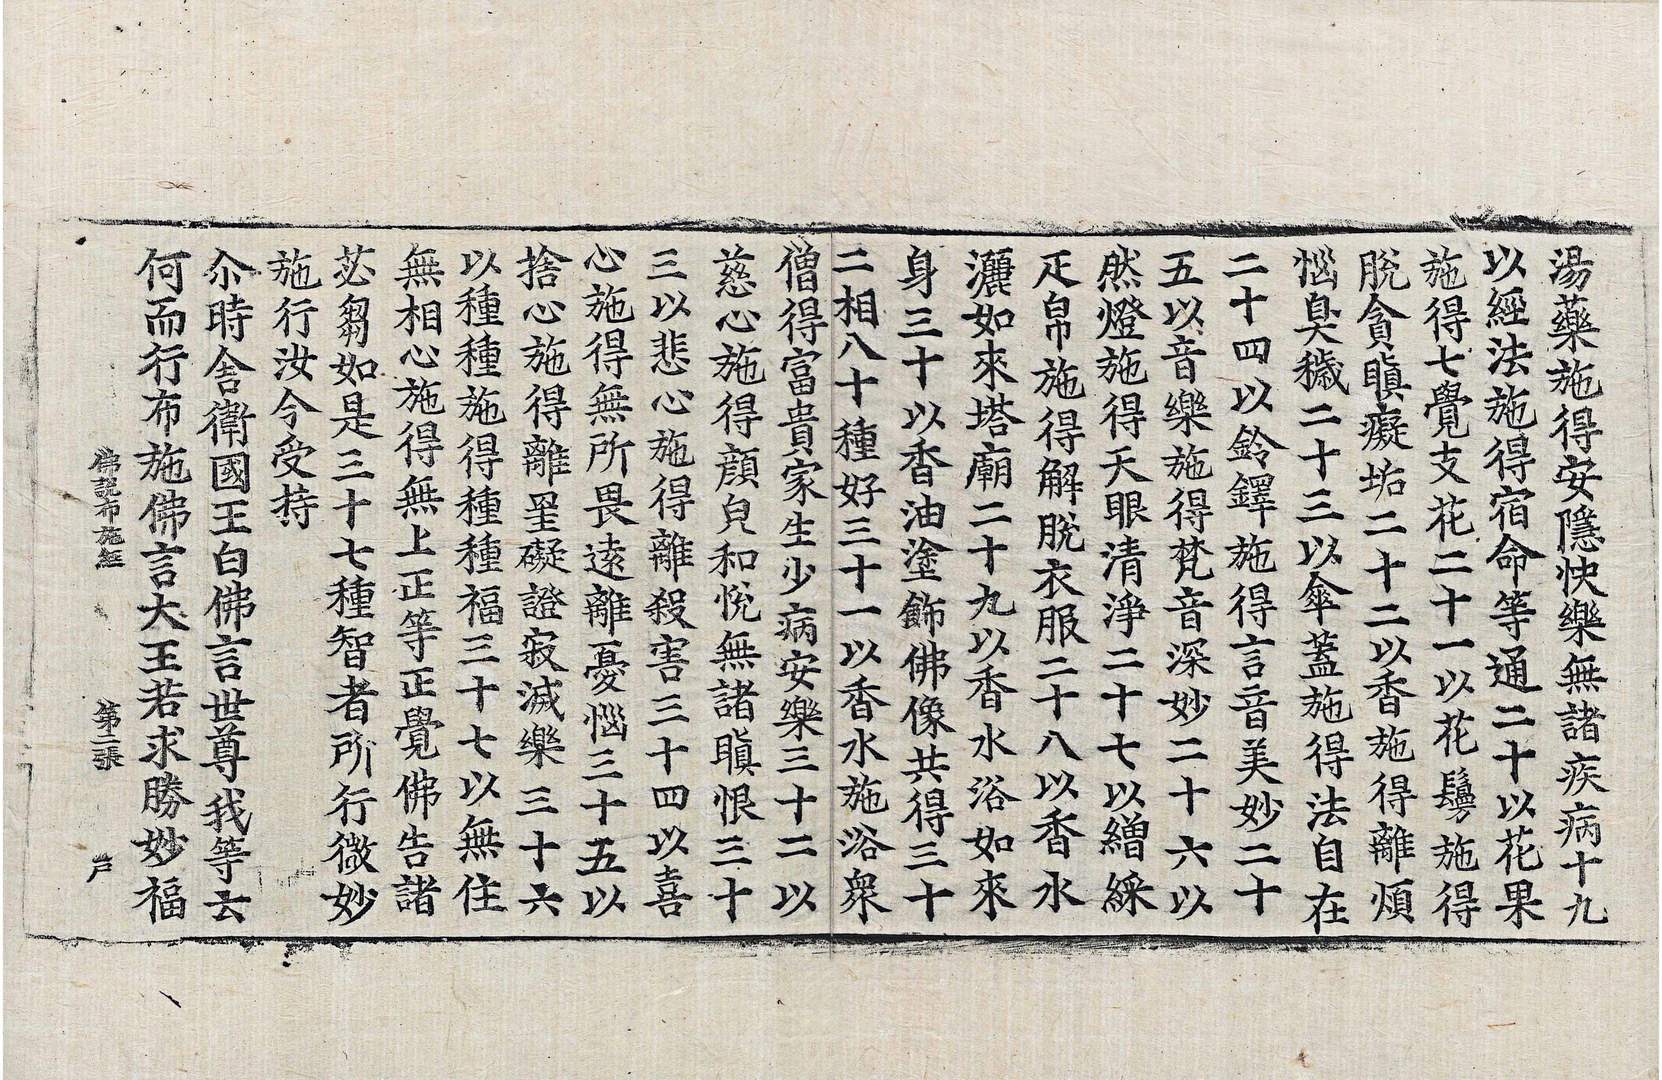 湯藥施得安隱快樂無諸疾病十九
以經法施得宿命等通二十以花果
施得七覺支花二十一以花鬘施得
脫貪瞋癡垢二十二以香施得離煩
惱臭穢二十三以傘蓋施得法自在
二十四以鈴鐸施得言音美妙二十
五以音樂施得梵音深妙二十六以
然燈施得天眼清淨二十七以繒綵
疋帛施得解脫衣服二十八以香水
灑如來塔廟二十九以香水浴如來
身三十以香油塗飾佛像共得三十
二相八十種好三十一以香水施浴衆
僧得富貴家生少病安樂三十二以
慈心施得顔皃和悅無諸瞋恨三十
三以悲心施得離殺害三十四以喜
心施得無所畏遠離憂惱三十五以
捨心施得離罣礙證寂滅樂三十六
以種種施得種種福三十七以無住
無相心施得無上正等正覺佛告諸
苾芻如是三十七種智者所行微妙
施行汝今受持
尒時舍衛國王白佛言世尊我等云
何而行布施佛言大王若求勝妙福
佛說布施經　第二張　尸